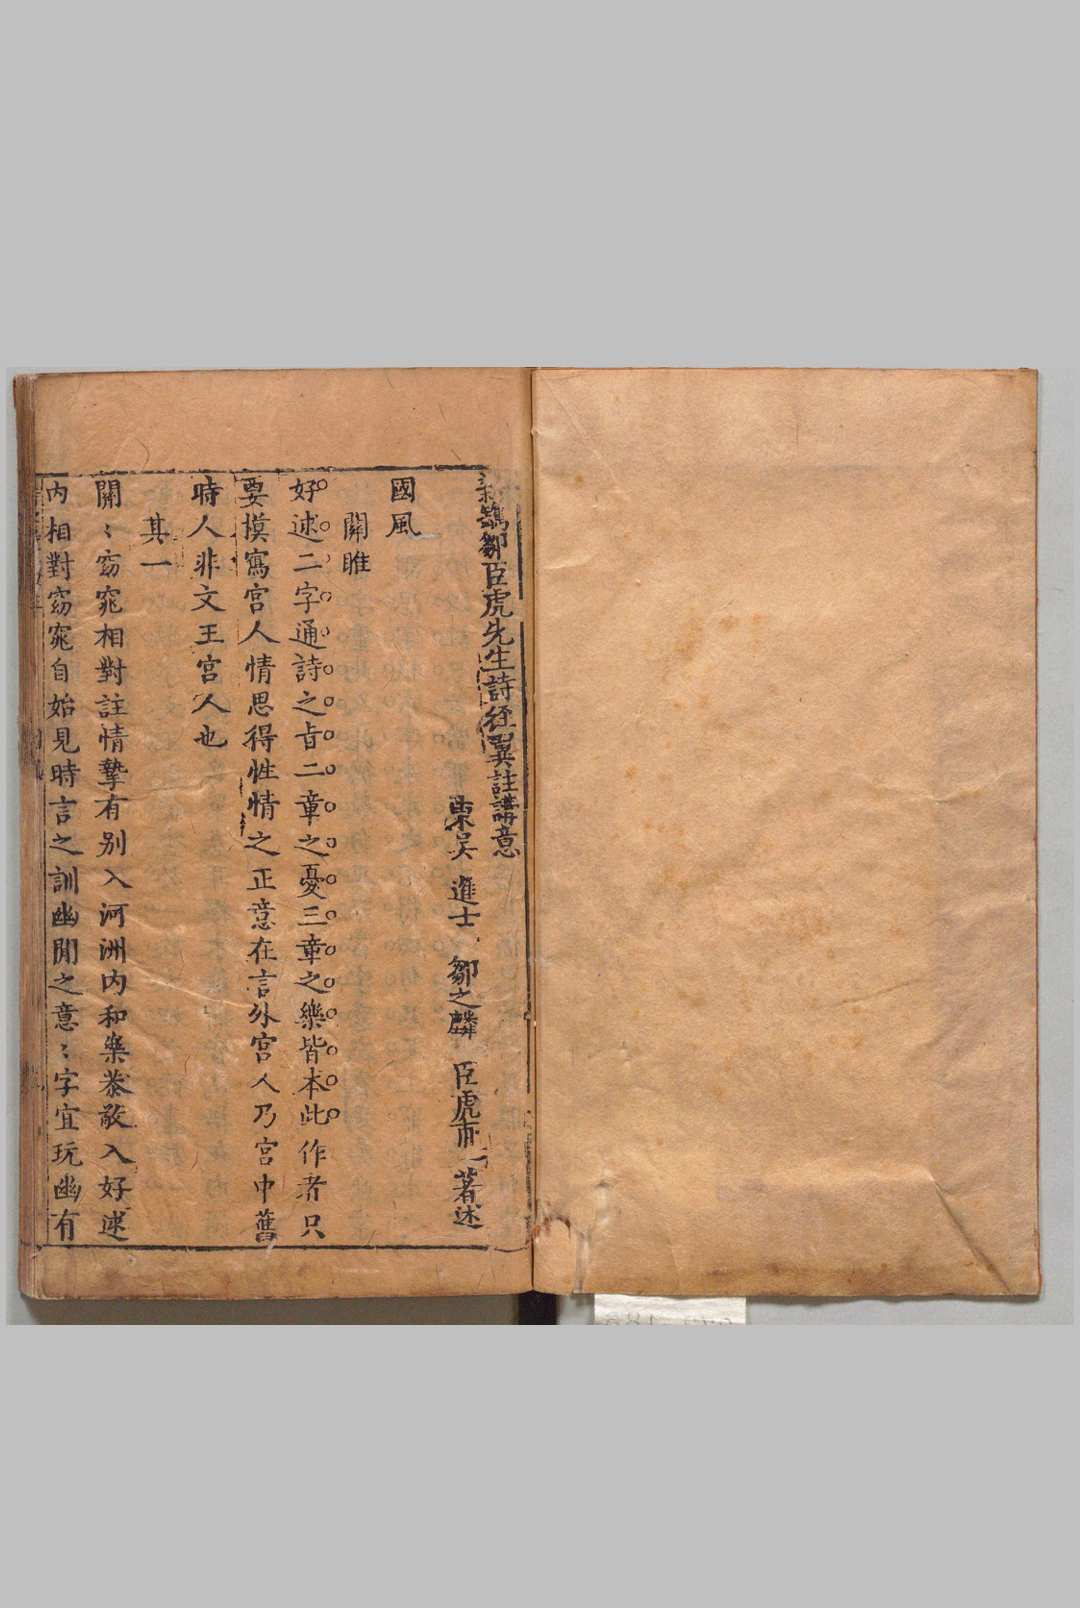 新鐫鄒臣虎先生詩經翼註講意
東吳 進士 鄒之麟 臣虎甫 著述
國風
關雎
好逑二字通詩之旨二章之憂三章之樂皆本此作者只
要摸寫宮人情思得性情之正意在言外宮人乃宮中舊
時人非文王宮人也
其一
關〻窈窕相對註情摯有別入河洲內和樂恭敬入好逑
內相對窈窕自始見時言之訓幽閒之意〻字宜玩幽有